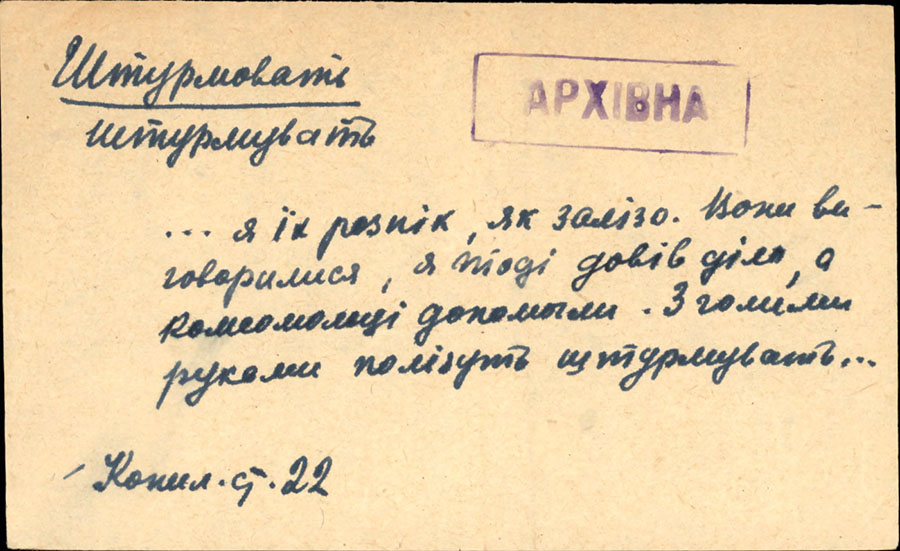 Штурмовать
АРХІВНА
штурмувать
... я їх розпік, як залізо. Вони ви-
говорилися, я тоді довів діло, а
комсомольці допомогли. З голими
руками полізуть штурмувать...
Копил. ст. 22